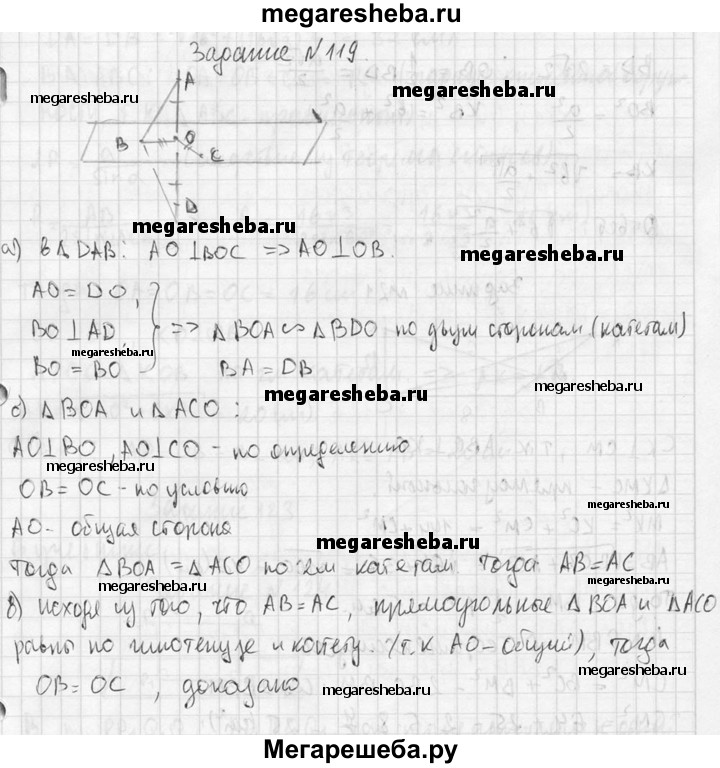 megaresheba.ru
Задание №119.
megaresheba.ru
megaresheba.ru
A
B
O
C
D
megaresheba.ru
а) в △DAB: AO⊥BOC => AO⊥OB.
megaresheba.ru
AO=DO,
BO⊥AD => △BOA ∽ △BDO по двум сторонам (катетам)
megaresheba.ru
BO=BO BA=DB
megaresheba.ru
megaresheba.ru
б) △BOA и △ACO:
AO⊥BO, AO⊥CO - по определению
megaresheba.ru
OB=OC - по условию
megaresheba.ru
AO- общая сторона
megaresheba.ru
Тогда △BOA=△ACO по катетам тогда AB=AC
megaresheba.ru
megaresheba.ru
в) исходя из того, что AB=AC, прямоугольные △BOA и △ACO
равны по гипотенузе и катету. (т.к AO-общий), тогда
megaresheba.ru
OB=OC, доказано
megaresheba.ru
megaresheba.ru
Мегарешеба.ру